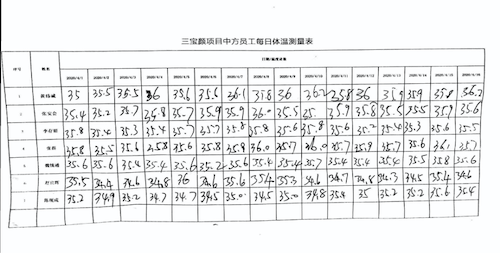 三宝颜项目中方员工每日体温测量表
序号 姓名 日期/温度读数
2020/4/1 2020/4/2 2020/4/3 2020/4/4 2020/4/5 2020/4/6 2020/4/7 2020/4/8 2020/4/9 2020/4/10 2020/4/11 2020/4/12 2020/4/13 2020/4/14 2020/4/15 2020/4/16
1 35 35.5 35.5 36 35.6 35.6 36.1 35.8 36 36.2 35.8 36 35.9 35.8 36.2
2 35.4 35.2 35.7 35.8 35.7 35.9 35.9 36.0 35.5 35.9 35.8 35.5 35.5 35.9 35.6
3 35.8 35.4 35.3 35.4 35.7 35.7 35.8 35.8 35.6 35.8 35.6 35.2 35.4 35.3 35.6 35.5
4 35.8 35.5 35.6 35.8 35.6 35.8 35.9 36.0 35.7 36.0 35.7 35.9 35.7 35.6 36.1 35.7
5 35.6 35.6 35.4 35.4 35.6 35.2 35.6 35.4 35.4 35.7 35.4 35.4 35.4 35.5 35.8 35.6
6 35.5 34.4 34.6 34.8 36 34.6 35.6 35.4 35.3 34.6 34.7 34.8 34.3 34.5 35.4 34.6
7 35.2 34.9 35.2 34.7 34.7 34.5 35.0 34.5 35.0 34.8 35.4 35 35.2 35.2 35.6 35.4